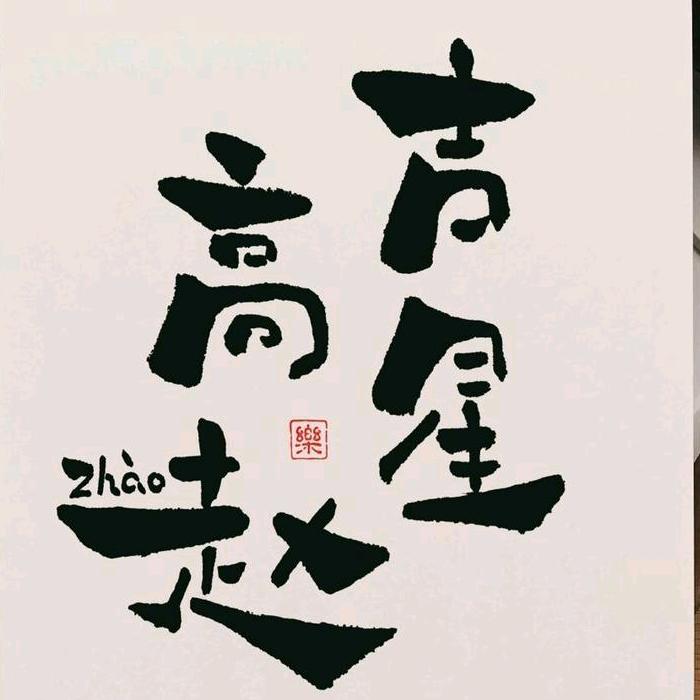 吉星
高赵
zhào
樂